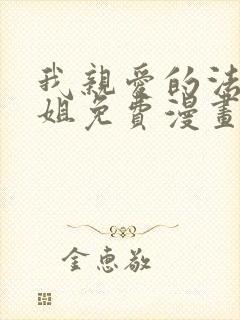 我親愛的法
姐免費漫畫
金惠敬